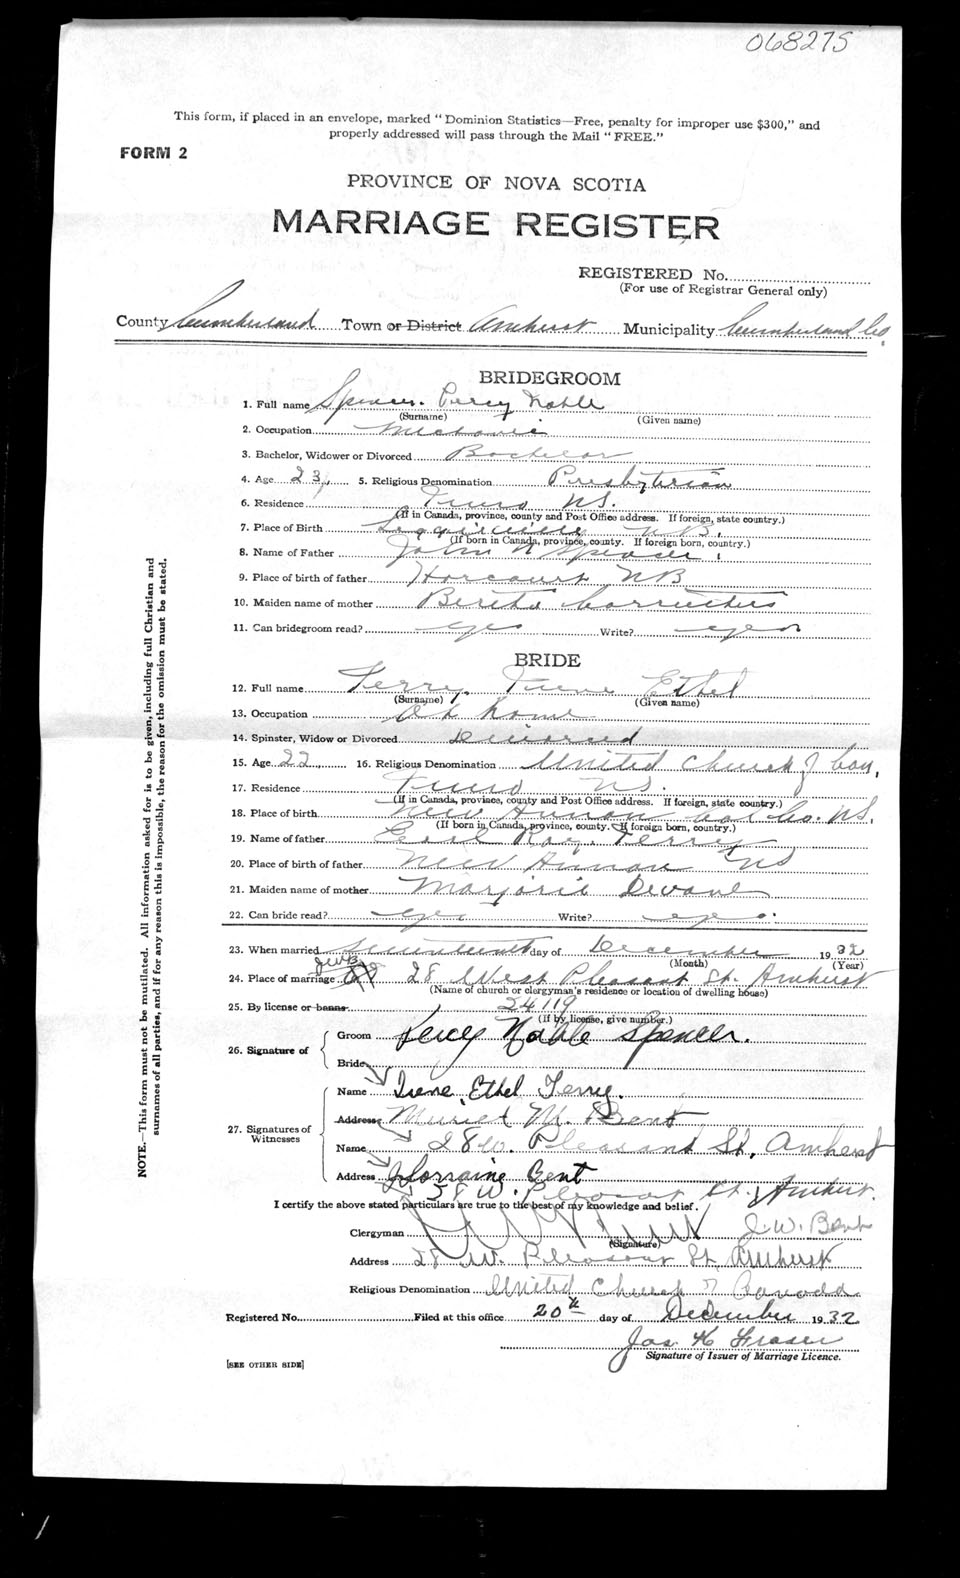 068275
This form, if placed in an envelope, marked "Dominion Statistics—Free, penalty for improper use $300," and
properly addressed will pass through the Mail "FREE."
FORM 2
PROVINCE OF NOVA SCOTIA
MARRIAGE REGISTER
REGISTERED No.
(For use of Registrar General only)
County Cumberland Town or District Amherst Municipality Cumberland Co.
BRIDEGROOM
1. Full name Spencer. Percy Noble
(Surname) (Given name)
2. Occupation Mechanic
3. Bachelor, Widower or Divorced Bachelor
4. Age 23 5. Religious Denomination Presbyterian
6. Residence Truro NS.
(If in Canada, province, county and Post Office address. If foreign, state country.)
7. Place of Birth N.B.
(If born in Canada, province, county. If foreign born, country.)
8. Name of Father John Spencer
9. Place of birth of father Harcourt NB
10. Maiden name of mother Bertha Carruthers
11. Can bridegroom read? yes Write? yes
BRIDE
12. Full name Terry, Irene Ethel
(Surname) (Given name)
13. Occupation At home
14. Spinster, Widow or Divorced Divorced
15. Age 22 16. Religious Denomination United Church of Can.
17. Residence Truro NS.
(If in Canada, province, county and Post Office address. If foreign, state country.)
18. Place of birth New Annan Col. Co. NS.
(If born in Canada, province, county. If foreign born, country.)
19. Name of father Roy Terry
20. Place of birth of father New Annan NS
21. Maiden name of mother Marjorie Devane
22. Can bride read? yes Write? yes.
23. When married seventeenth day of December 1932
(Month) (Year)
24. Place of marriage JWB 28 West Pleasant St. Amherst
(Name of church or clergyman's residence or location of dwelling house)
25. By license or banns 24119
(If by license, give number.)
26. Signature of
Groom Percy Noble Spencer.
Bride
27. Signatures of Witnesses
Name Irene Ethel Terry.
Address Muriel M. Bent
Name 28 W. Pleasant St, Amherst
Address Lorraine Bent
28 W. Pleasant St. Amherst.
I certify the above stated particulars are true to the best of my knowledge and belief.
Clergyman J. W. Bent
(Signature)
Address 28 W. Pleasant St. Amherst
Religious Denomination United Church of Canada
Registered No. Filed at this office 20th day of December 1932
Jas. K Fraser
Signature of Issuer of Marriage Licence.
[SEE OTHER SIDE]
NOTE.—This form must not be mutilated. All information asked for is to be given, including full Christian and
surnames of all parties, and if for any reason this is impossible, the reason for the omission must be stated.